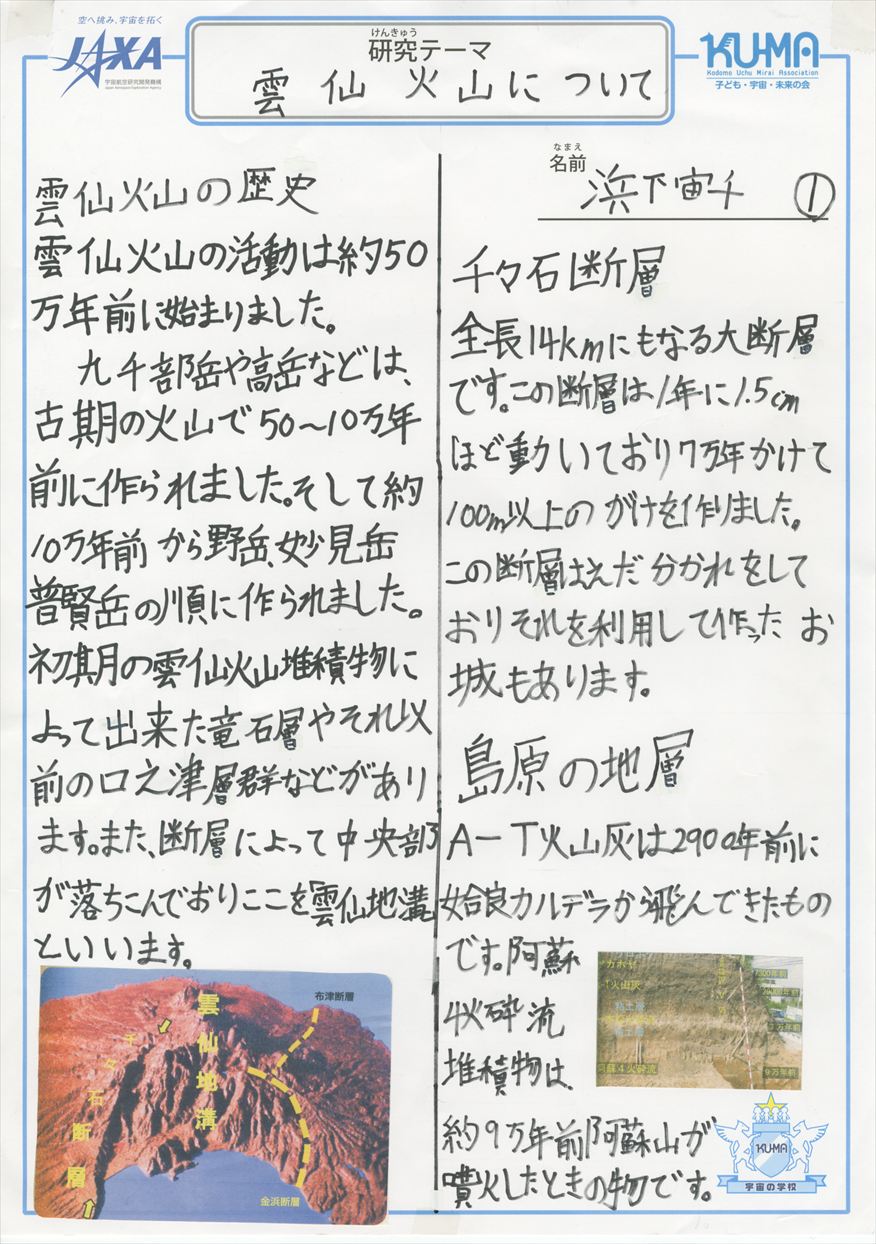 空へ挑み、宇宙を拓く
JAXA
宇宙航空研究開発機構
Japan Aerospace Exploration Agency
けんきゅう
研究テーマ
雲仙火山について
KU-MA
Kodomo Uchu Mirai Association
子ども・宇宙・未来の会
なまえ
名前 浜下宙千 ①
雲仙火山の歴史
雲仙火山の活動は約50
万年前に始まりました。
九千部岳や高岳などは、
古期の火山で50〜10万年
前に作られました。そして約
10万年前から野岳、妙見岳
普賢岳の順に作られました。
初期の雲仙火山堆積物に
よって出来た竜石層やそれ以
前の口之津層群などがあり
ます。また、断層によって中央部
が落ちこんでおりここを「雲仙地溝」
といいます。
雲仙地溝
布津断層
千々石断層
金浜断層
千々石断層
全長14kmにもなる大断層
です。この断層は1年に1.5cm
ほど動いており7万年かけて
100m以上のがけを作りました。
この断層はえだ分かれをして
おりそれを利用して作ったお
城もあります。
島原の地層
A-T火山灰は2900年前に
姶良カルデラから飛んできたもの
です。阿蘇
4火砕流
堆積物は、
約9万年前阿蘇山が
噴火したときの物です。
T火山灰
粘土層
阿蘇4火砕流
7300年前
9万年前
KU-MA
宇宙の学校